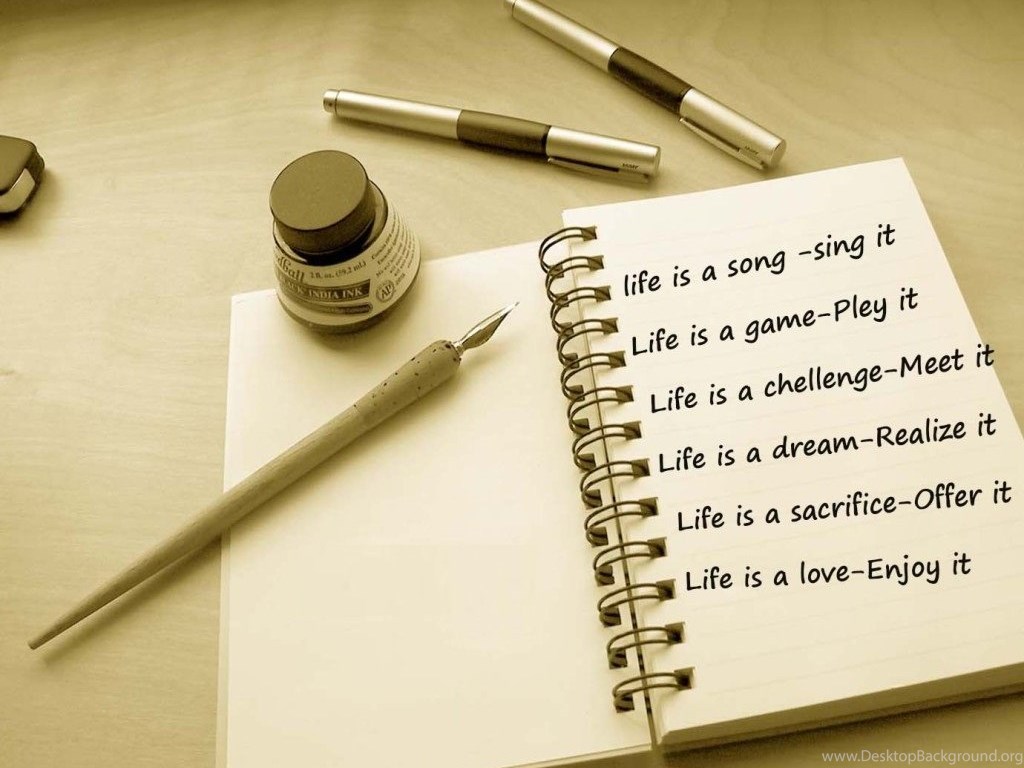 life is a song -sing it
Life is a game-Pley it
Life is a chellenge-Meet it
Life is a dream-Realize it
Life is a sacrifice-Offer it
Life is a love-Enjoy it
1 fl. oz. (29.2 mL)
INDIA INK
AP
www.DesktopBackground.org